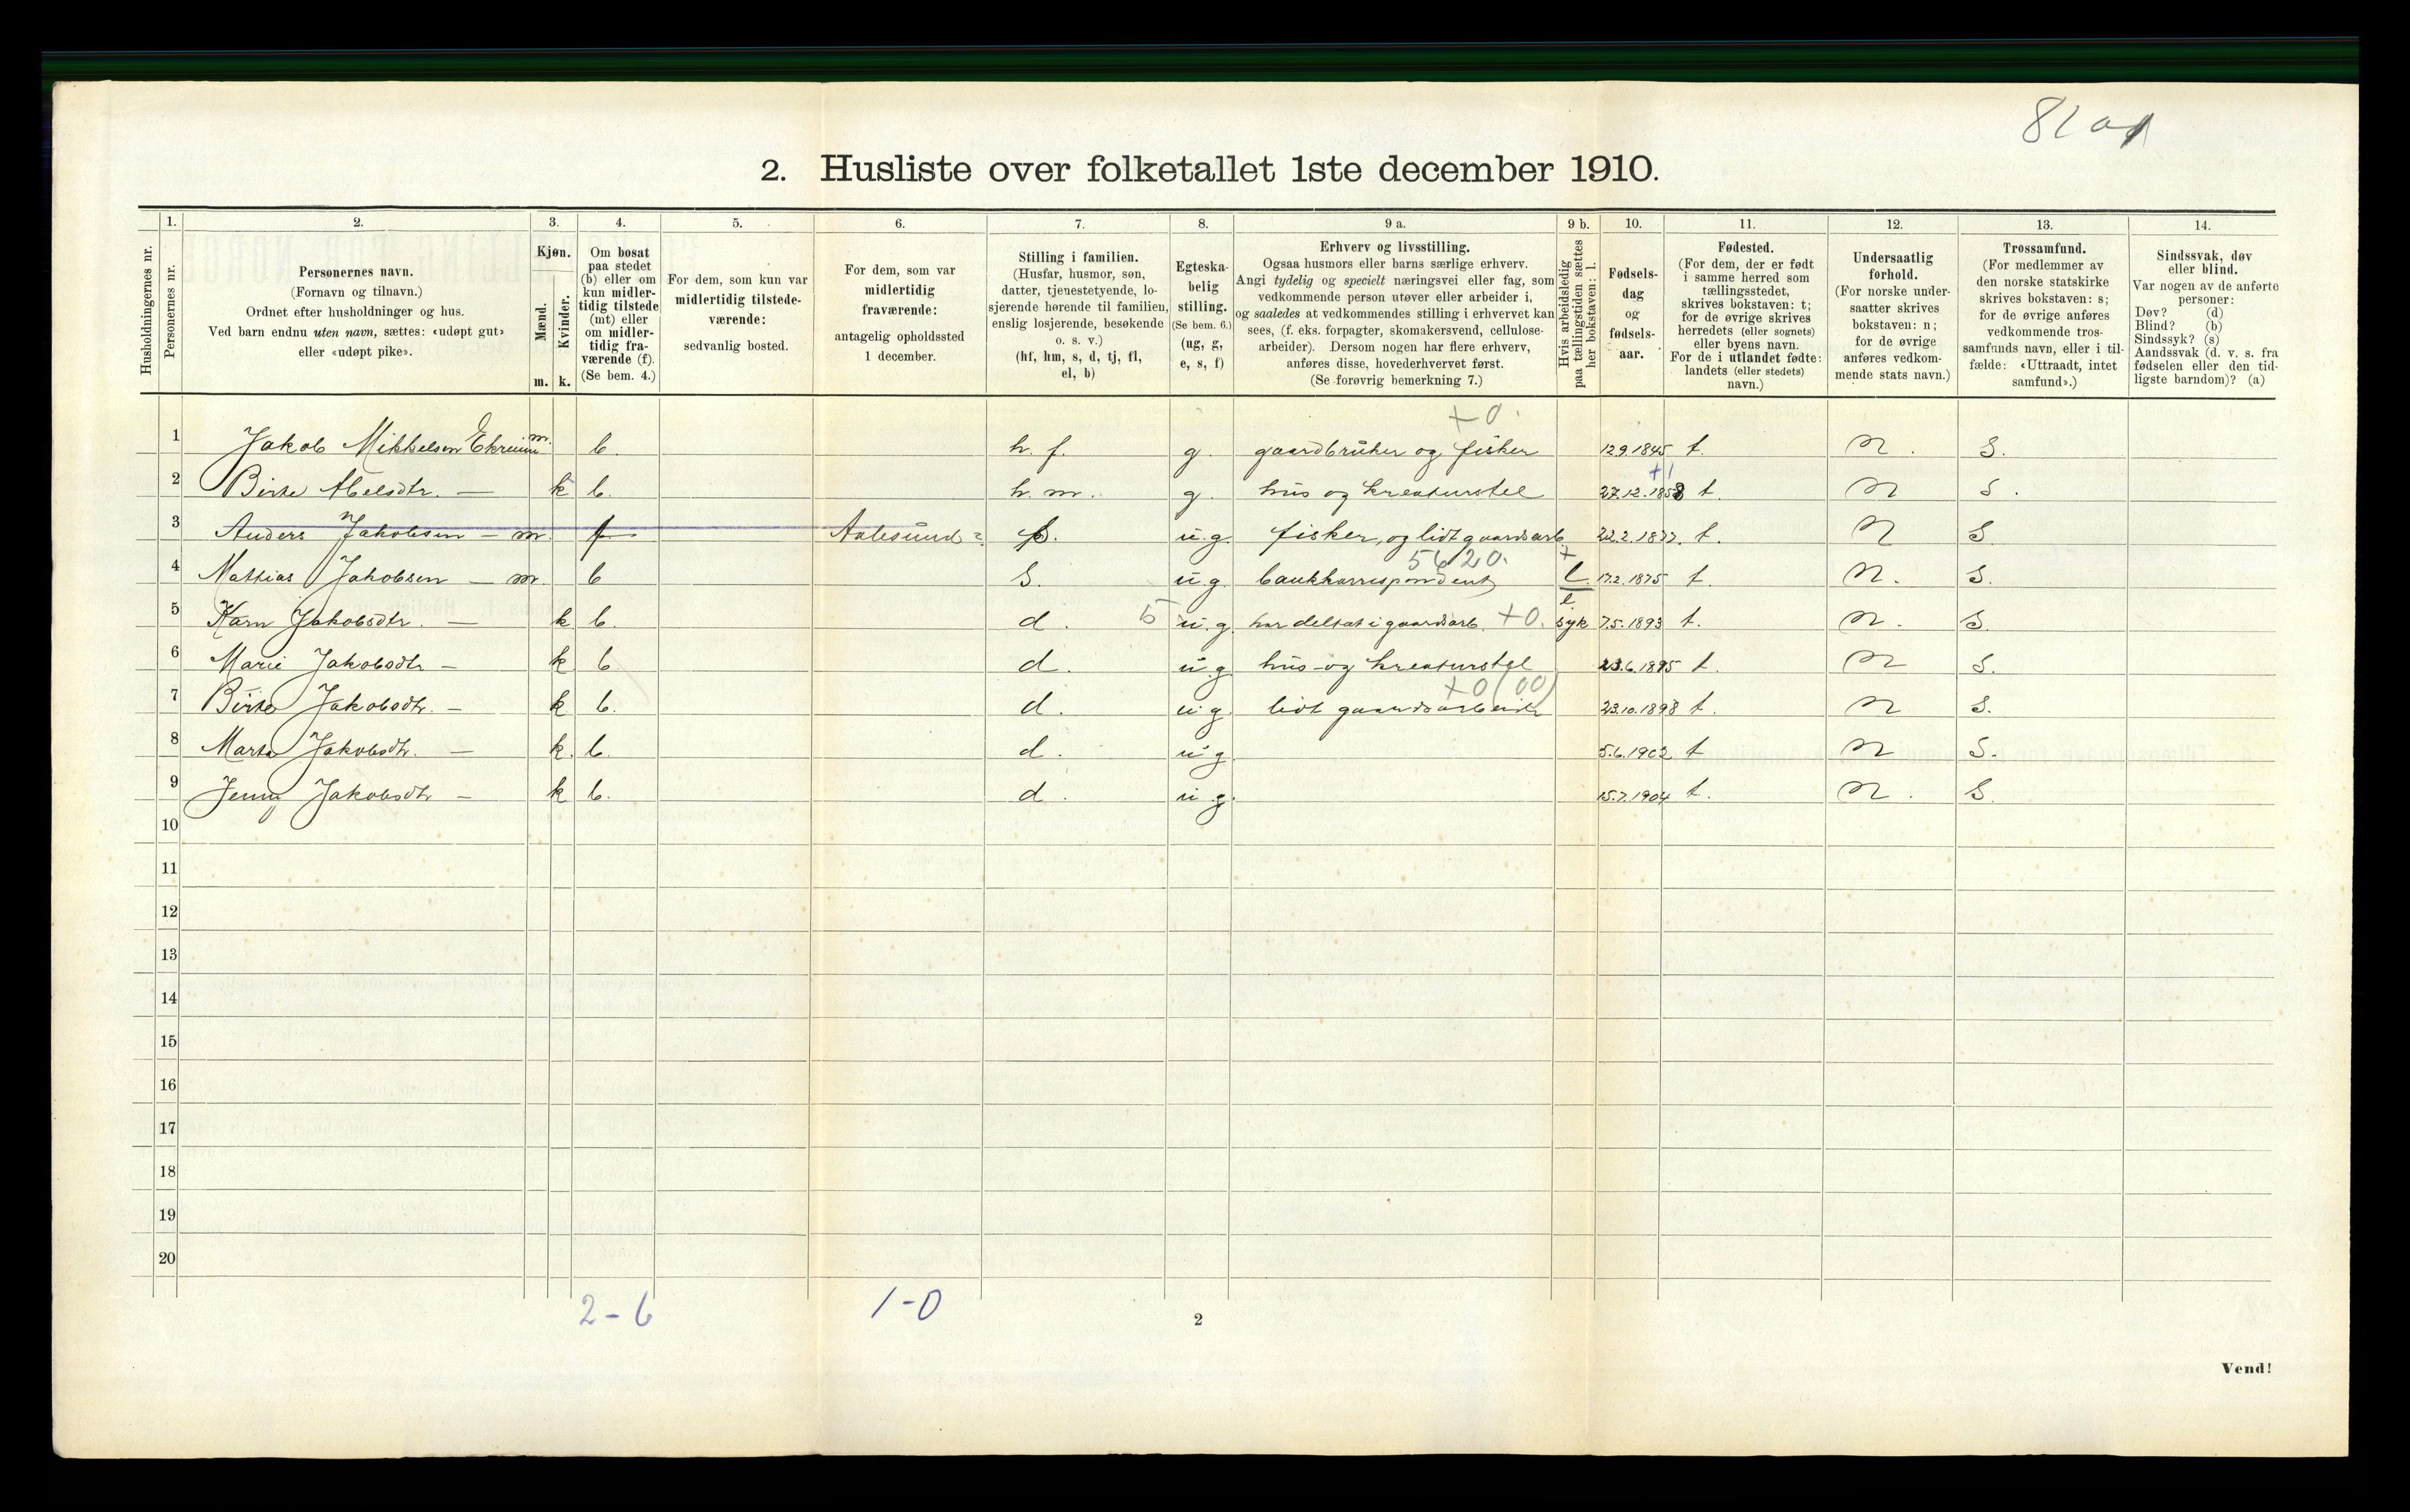 2. Husliste over folketallet 1ste december 1910.
Husholdningernes nr.
1. Personernes nr.
2. Personernes navn.
(Fornavn og tilnavn.)
Ordnet efter husholdninger og hus.
Ved barn endnu uten navn, sættes: «udøpt gut»
eller «udøpt pike».
3. Kjøn.
Mænd. m.
Kvinder. k.
4. Om bosat
paa stedet
(b) eller om
kun midler-
tidig tilstede
(mt) eller
om midler-
tidig fra-
værende (f).
(Se bem. 4.)
5. For dem, som kun var
midlertidig tilstede-
værende:
sedvanlig bosted.
6. For dem, som var
midlertidig
fraværende:
antagelig opholdssted
1 december.
7. Stilling i familien.
(Husfar, husmor, søn,
datter, tjenestetyende, lo-
sjerende hørende til familien,
enslig losjerende, besøkende
o. s. v.)
(hf, hm, s, d, tj, fl,
el, b)
8. Egteska-
belig
stilling.
(Se bem. 6.)
(ug, g,
e, s, f)
9 a. Erhverv og livsstilling.
Ogsaa husmors eller barns særlige erhverv.
Angi tydelig og specielt næringsvei eller fag, som
vedkommende person utøver eller arbeider i,
og saaledes at vedkommendes stilling i erhvervet kan
sees, (f. eks. forpagter, skomakersvend, cellulose-
arbeider). Dersom nogen har flere erhverv,
anføres disse, hovederhvervet først.
(Se forøvrig bemerkning 7.)
9 b. Hvis arbeidsledig
paa tællingstiden sættes
her bokstaven: l.
10. Fødsels-
dag
og
fødsels-
aar.
11. Fødested.
(For dem, der er født
i samme herred som
tællingsstedet,
skrives bokstaven: t;
for de øvrige skrives
herredets (eller sognets)
eller byens navn.
For de i utlandet fødte:
landets (eller stedets)
navn.)
12. Undersaatlig
forhold.
(For norske under-
saatter skrives
bokstaven: n;
for de øvrige
anføres vedkom-
mende stats navn.)
13. Trossamfund.
(For medlemmer av
den norske statskirke
skrives bokstaven: s;
for de øvrige anføres
vedkommende tros-
samfunds navn, eller i til-
fælde: «Uttraadt, intet
samfund».)
14. Sindssvak, døv
eller blind.
Var nogen av de anførte
personer:
Døv? (d)
Blind? (b)
Sindssyk? (s)
Aandssvak (d. v. s. fra
fødselen eller den tid-
ligste barndom)? (a)
+0.
1 Jakob Mikkelsen Ekreim m. b. h. f. g. gaardbruker og fisker 12.9.1845 t. n. S.
+1
2 Birte Abelsdtr. — k b. h. m. g. hus og kreaturstel 27.12.1858 t. n S.
3 Anders Jakobsen — m. f Aalesund ? S. u.g. fisker, og lidt gaardsarb. 22.2.1877. t. n S.
5620. +
4 Mattias Jakobsen — m. b S. u.g. bankkorrespondent l. 17.2.1875 t. n. S.
5 Karn Jakobsdtr. — k. b. d. 5 u.g. har deltat i gaardsarb. +0. l syk 7.5.1893 t. n. S.
6 Marie Jakobsdtr — k b d. u.g. hus- og kreaturstel 23.6.1895 t. n S.
+0 (00)
7 Birte Jakobsdtr. — k b. d. u.g. lidt gaardsarbeide 23.10.1898 t. n S.
8 Marta Jakobsdtr. — k. b. d. u.g. 5.6.1902 t n S.
9 Jenny Jakobsdtr — k b. d. u.g. 15.7.1904 t. n. S.
10
11
12
13
14
15
16
17
18
19
20
2-6 1-0
2
Vend!